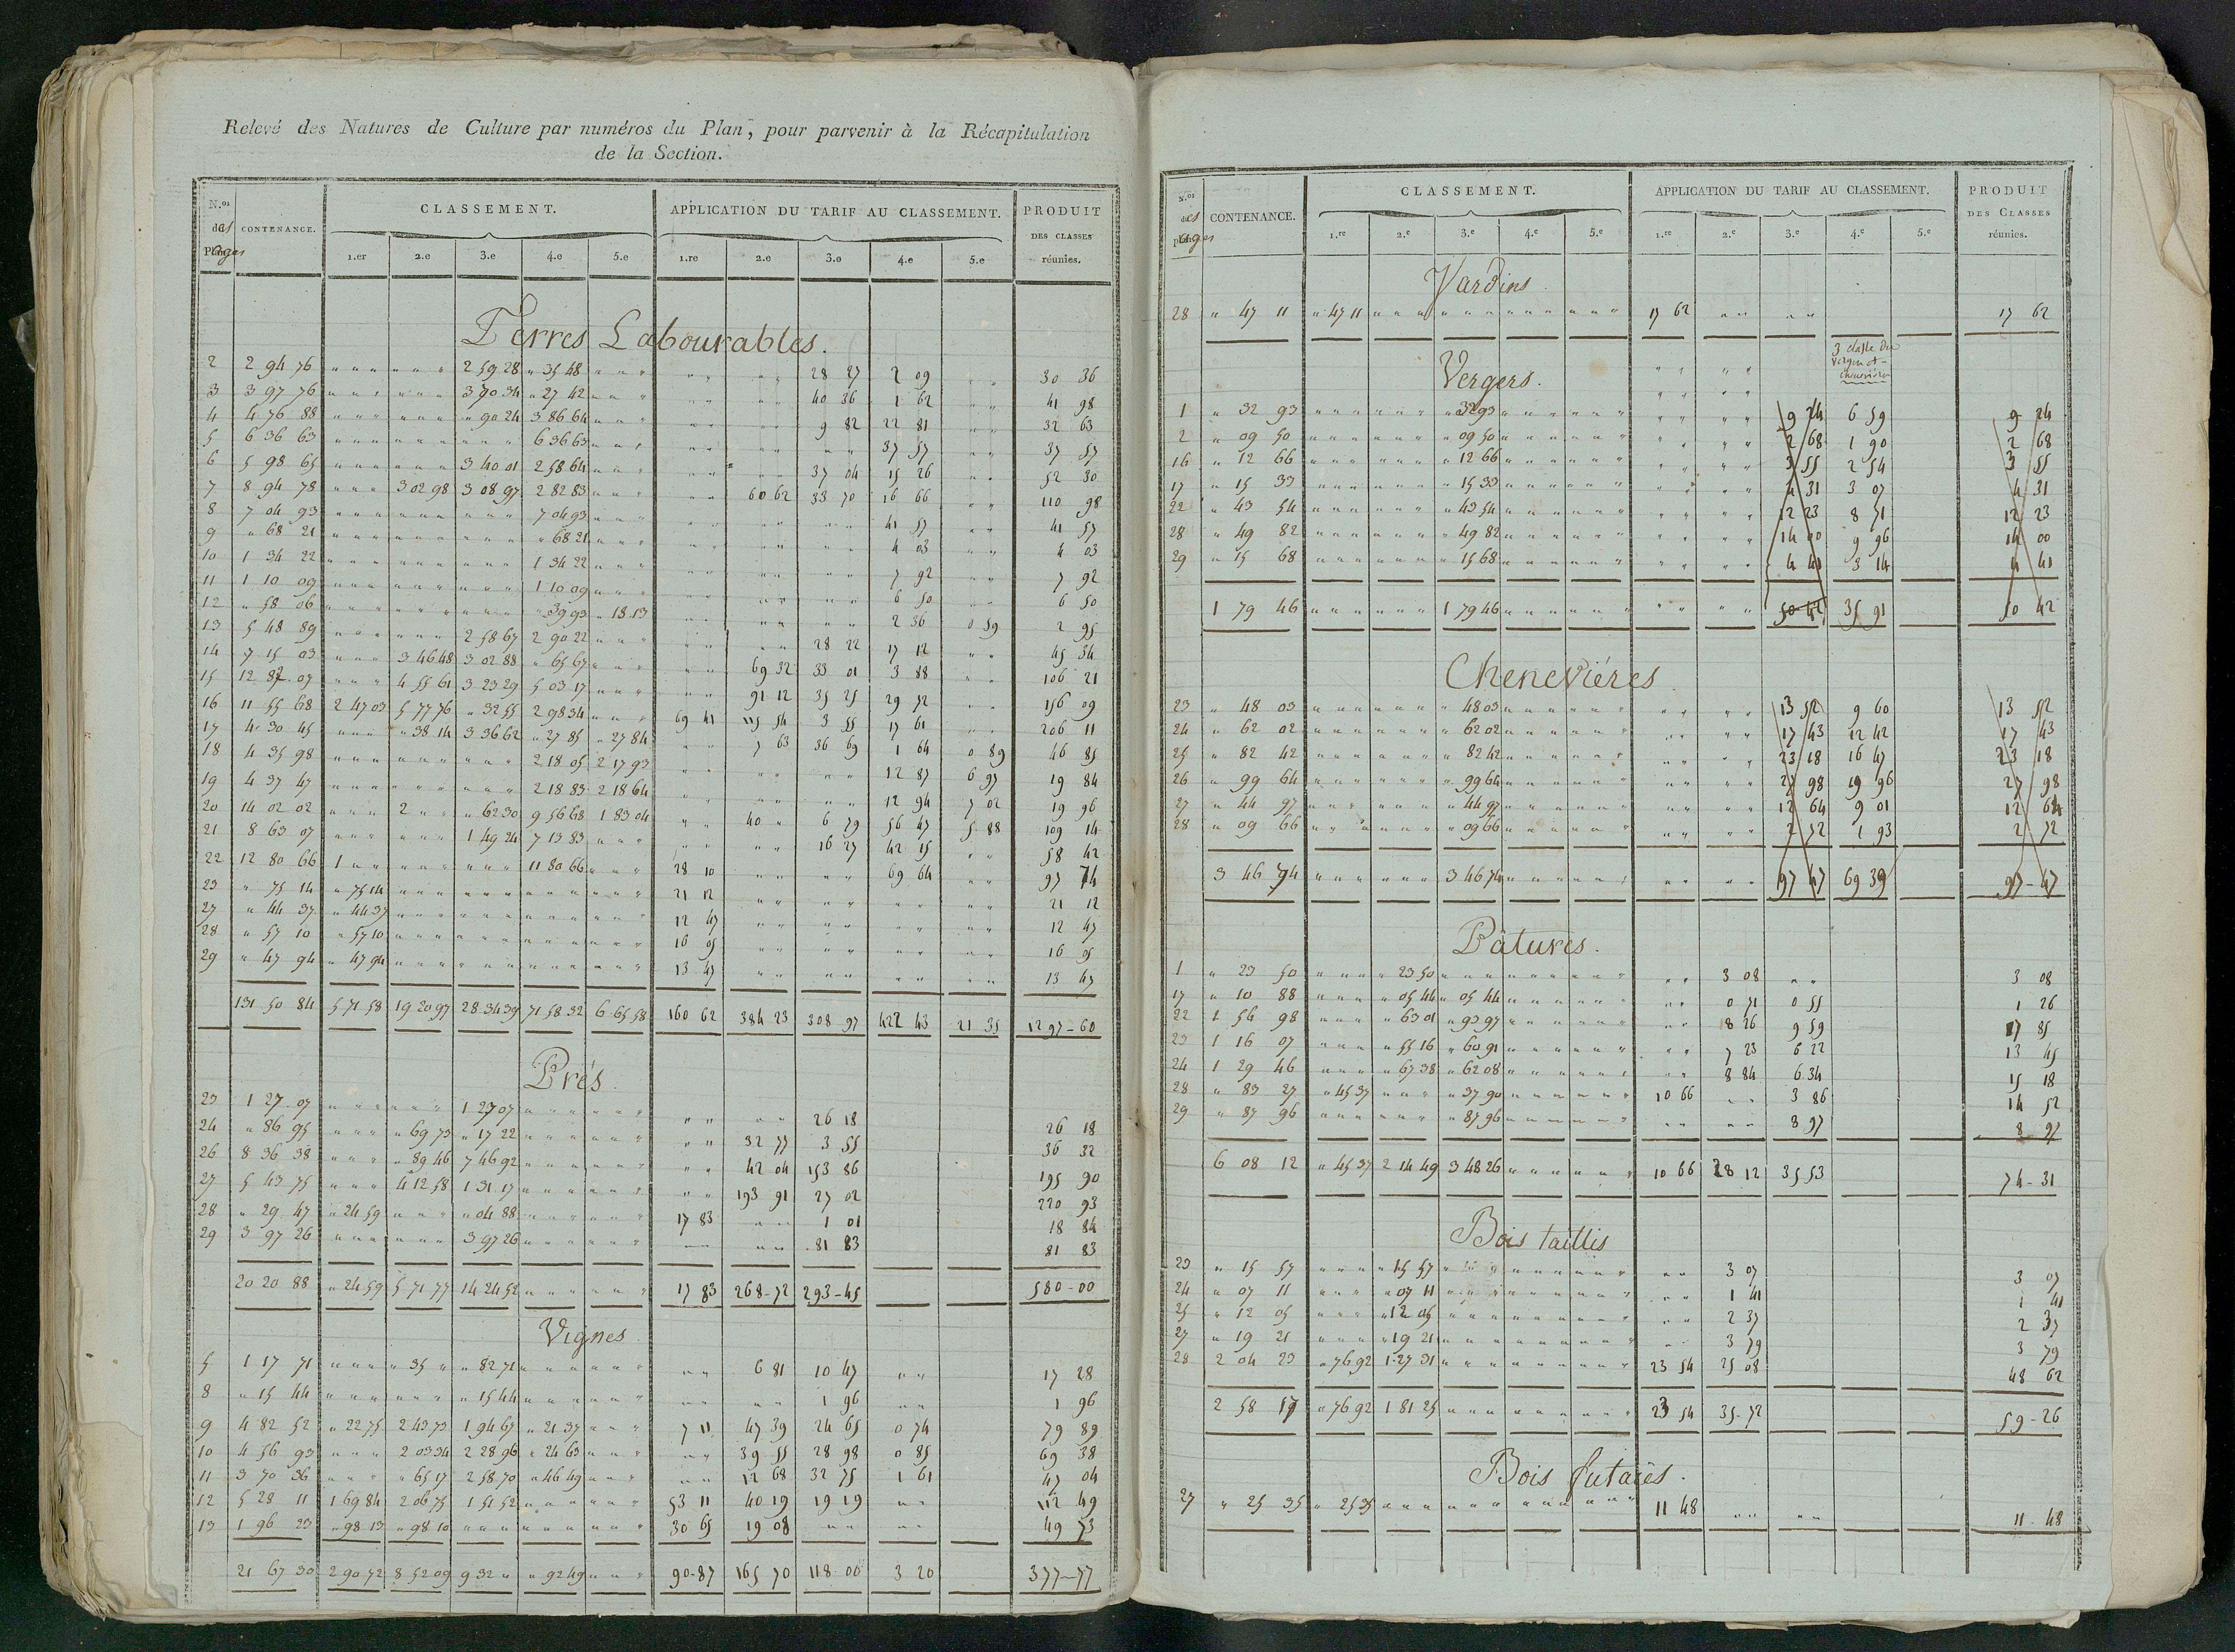 Relevé des Natures de Culture par numéros du Plan, pour parvenir à la Récapitulation
de la Section.
N.os des pages CONTENANCE. CLASSEMENT. APPLICATION DU TARIF AU CLASSEMENT. PRODUIT DES CLASSES réunies.
1.er 2.e 3.e 4.e 5.e 1.re 2.e 3.e 4.e 5.e
Terres Labourables.
2 2 94 76 " " " " " " 2 59 28 " 35 48 " " " " " " " 28 27 2 09 " " 30 36
3 3 97 76 " " " " " " 3 70 34 " 27 42 " " " " " " " 40 36 1 62 " " 41 98
4 4 76 88 " " " " " " " 90 24 3 86 64 " " " " " " " 9 82 22 81 " " 32 63
5 6 36 63 " " " " " " " " " 6 36 63 " " " " " " " " " 37 57 " " 37 57
6 5 98 65 " " " " " " 3 40 01 2 58 64 " " " " " " " 37 04 15 26 " " 52 30
7 8 94 78 " " " 3 02 98 3 08 97 2 82 83 " " " " " 60 62 33 70 16 66 " " 110 98
8 7 04 93 " " " " " " " " " 7 04 93 " " " " " " " " " 41 57 " " 41 57
9 " 68 21 " " " " " " " " " " 68 21 " " " " " " " " " 4 03 " " 4 03
10 1 34 22 " " " " " " " " " 1 34 22 " " " " " " " " " 7 92 " " 7 92
11 1 10 09 " " " " " " " " " 1 10 09 " " " " " " " " " 6 50 " " 6 50
12 " 58 06 " " " " " " " " " " 39 93 " 18 13 " " " " " " 2 36 0 59 2 95
13 5 48 89 " " " " " " 2 58 67 2 90 22 " " " " " " " 28 22 17 12 " " 45 34
14 7 15 03 " " " 3 46 48 3 02 88 " 65 67 " " " " " 69 32 33 01 3 88 " " 106 21
15 12 82 07 " " " 4 55 61 3 23 29 5 03 17 " " " " " 91 12 35 25 29 72 " " 156 09
16 11 55 68 2 47 03 5 77 76 " 32 55 2 98 34 " " " 69 41 115 54 3 55 17 61 " " 206 11
17 4 30 45 " " " " 38 14 3 36 62 " 27 85 " 27 84 " " 7 63 36 69 1 64 0 89 46 85
18 4 35 98 " " " " " " " " " 2 18 05 2 17 93 " " " " " " 12 87 6 97 19 84
19 4 37 47 " " " " " " " " " 2 18 83 2 18 64 " " " " " " 12 94 7 02 19 96
20 14 02 02 " " " 2 " " " 62 30 9 56 68 1 83 04 " " 40 " 6 79 56 47 5 88 109 14
21 8 63 07 " " " " " " 1 49 24 7 13 83 " " " " " " " 16 27 42 15 " " 58 42
22 12 80 66 1 " " " " " " " " 11 80 66 " " " 28 10 " " " " 69 64 " " 97 74
23 " 75 14 " 75 14 " " " " " " " " " " " " 21 12 " " " " " " " " 21 12
27 " 44 37 " 44 37 " " " " " " " " " " " " 12 47 " " " " " " " " 12 47
28 " 57 10 " 57 10 " " " " " " " " " " " " 16 05 " " " " " " " " 16 05
29 " 47 94 " 47 94 " " " " " " " " " " " " 13 47 " " " " " " " " 13 47
131 50 84 5 71 58 19 20 97 28 34 39 71 58 32 6 65 58 160 62 384 23 308 97 422 43 21 35 1297-60
Prés
23 1 27 07 " " " " " " 1 27 07 " " " " " " " " " " 26 18 26 18
24 " 86 95 " " " " 69 73 " 17 22 " " " " " " " " 32 77 3 55 36 32
26 8 36 38 " " " " 89 46 7 46 92 " " " " " " " " 42 04 153 86 195 90
27 5 43 75 " " " 4 12 58 1 31 17 " " " " " " " " 193 91 27 02 220 93
28 " 29 47 " 24 59 " " " " 04 88 " " " " " " 17 83 " " 1 01 18 84
29 3 97 26 " " " " " " 3 97 26 " " " " " " " " " " 81 83 81 83
20 20 88 " 24 59 5 71 77 14 24 52 " " " " " " 17 83 268-72 293-45 580-00
Vignes
5 1 17 71 " " " " 35 " " 82 71 " " " " " " " " 6 81 10 47 " " 17 28
8 " 15 44 " " " " " " " 15 44 " " " " " " " " " " 1 96 " " 1 96
9 4 82 52 " 22 75 2 43 73 1 94 67 " 21 37 " " " 7 11 47 39 24 65 0 74 79 89
10 4 56 93 " " " 2 03 34 2 28 96 " 24 63 " " " " " 39 55 28 98 0 85 69 38
11 3 70 36 " " " " 65 17 2 58 70 " 46 49 " " " " " 12 68 32 75 1 61 47 04
12 5 28 11 1 69 84 2 06 75 1 51 52 " " " " " " 53 11 40 19 19 19 " " 112 49
13 1 96 23 " 98 13 " 98 10 " " " " " " " " " 30 65 19 08 " " " " 49 73
21 67 30 2 90 72 8 52 09 9 32 " " 92 49 " " " 90-87 165 70 118 00 3 20 377-77
N.os des pages CONTENANCE. CLASSEMENT. APPLICATION DU TARIF AU CLASSEMENT. PRODUIT DES CLASSES réunies.
1.re 2.e 3.e 4.e 5.e 1.re 2.e 3.e 4.e 5.e
Jardins.
28 " 47 11 " 47 11 " " " " " " " " " " " " 17 62 " " " " 17 62
3 classe de
verger et
chenevière
Vergers.
1 " 32 93 " " " " " " " 32 93 " " " " " " " " " " 9 24 6 59 9 24
2 " 09 50 " " " " " " " 09 50 " " " " " " " " " " 2 68 1 90 2 68
16 " 12 66 " " " " " " " 12 66 " " " " " " " " " " 3 55 2 54 3 55
17 " 15 33 " " " " " " " 15 33 " " " " " " " " " " 4 31 3 07 4 31
22 " 43 54 " " " " " " " 43 54 " " " " " " " " " " 12 23 8 71 12 23
28 " 49 82 " " " " " " " 49 82 " " " " " " " " " " 14 00 9 96 14 00
29 " 15 68 " " " " " " " 15 68 " " " " " " " " " " 4 41 3 14 4 41
1 79 46 " " " " " " 1 79 46 " " " " " " " " " " 50 42 35 91 50 42
Chenevières
23 " 48 03 " " " " " " " 48 03 " " " " " " " " " " 13 52 9 60 13 52
24 " 62 02 " " " " " " " 62 02 " " " " " " " " " " 17 43 12 42 17 43
25 " 82 42 " " " " " " " 82 42 " " " " " " " " " " 23 18 16 47 23 18
26 " 99 64 " " " " " " " 99 64 " " " " " " " " " " 27 98 19 96 27 98
27 " 44 97 " " " " " " " 44 97 " " " " " " " " " " 12 64 9 01 12 64
28 " 09 66 " " " " " " " 09 66 " " " " " " " " " " 2 72 1 93 2 72
3 46 74 " " " " " " 3 46 74 " " " " " " " " " " 97 47 69 39 97-47
Pâtures.
1 " 23 50 " " " " 23 50 " " " " " " " " " " " 3 08 " " 3 08
17 " 10 88 " " " " 05 44 " 05 44 " " " " " " " " 0 71 0 55 1 26
22 1 56 98 " " " " 63 01 " 93 97 " " " " " " " " 8 26 9 59 17 85
23 1 16 07 " " " " 55 16 " 60 91 " " " " " " " " 7 23 6 22 13 45
24 1 29 46 " " " " 67 38 " 62 08 " " " " " " " " 8 84 6 34 15 18
28 " 83 27 " 45 37 " " " " 37 90 " " " " " " 10 66 " " 3 86 14 52
29 " 87 96 " " " " " " " 87 96 " " " " " " " " " " 8 97 8 97
6 08 12 " 45 37 2 14 49 3 48 26 " " " " " " 10 66 28 12 35 53 74-31
Bois taillis
23 " 15 57 " " " " 15 57 " " " " " " " " " " " 3 07 3 07
24 " 07 11 " " " " 07 11 " " " " " " " " " " " 1 41 1 41
25 " 12 05 " " " " 12 05 " " " " " " " " " " " 2 37 2 37
27 " 19 21 " " " " 19 21 " " " " " " " " " " " 3 79 3 79
28 2 04 23 " 76 92 1 27 31 " " " " " " " " " 23 54 25 08 48 62
2 58 17 " 76 92 1 81 25 " " " " " " " " " 23 54 35-72 59-26
Bois futaies.
27 " 25 35 " 25 35 " " " " " " " " " " " " 11 48 " " " " 11 48